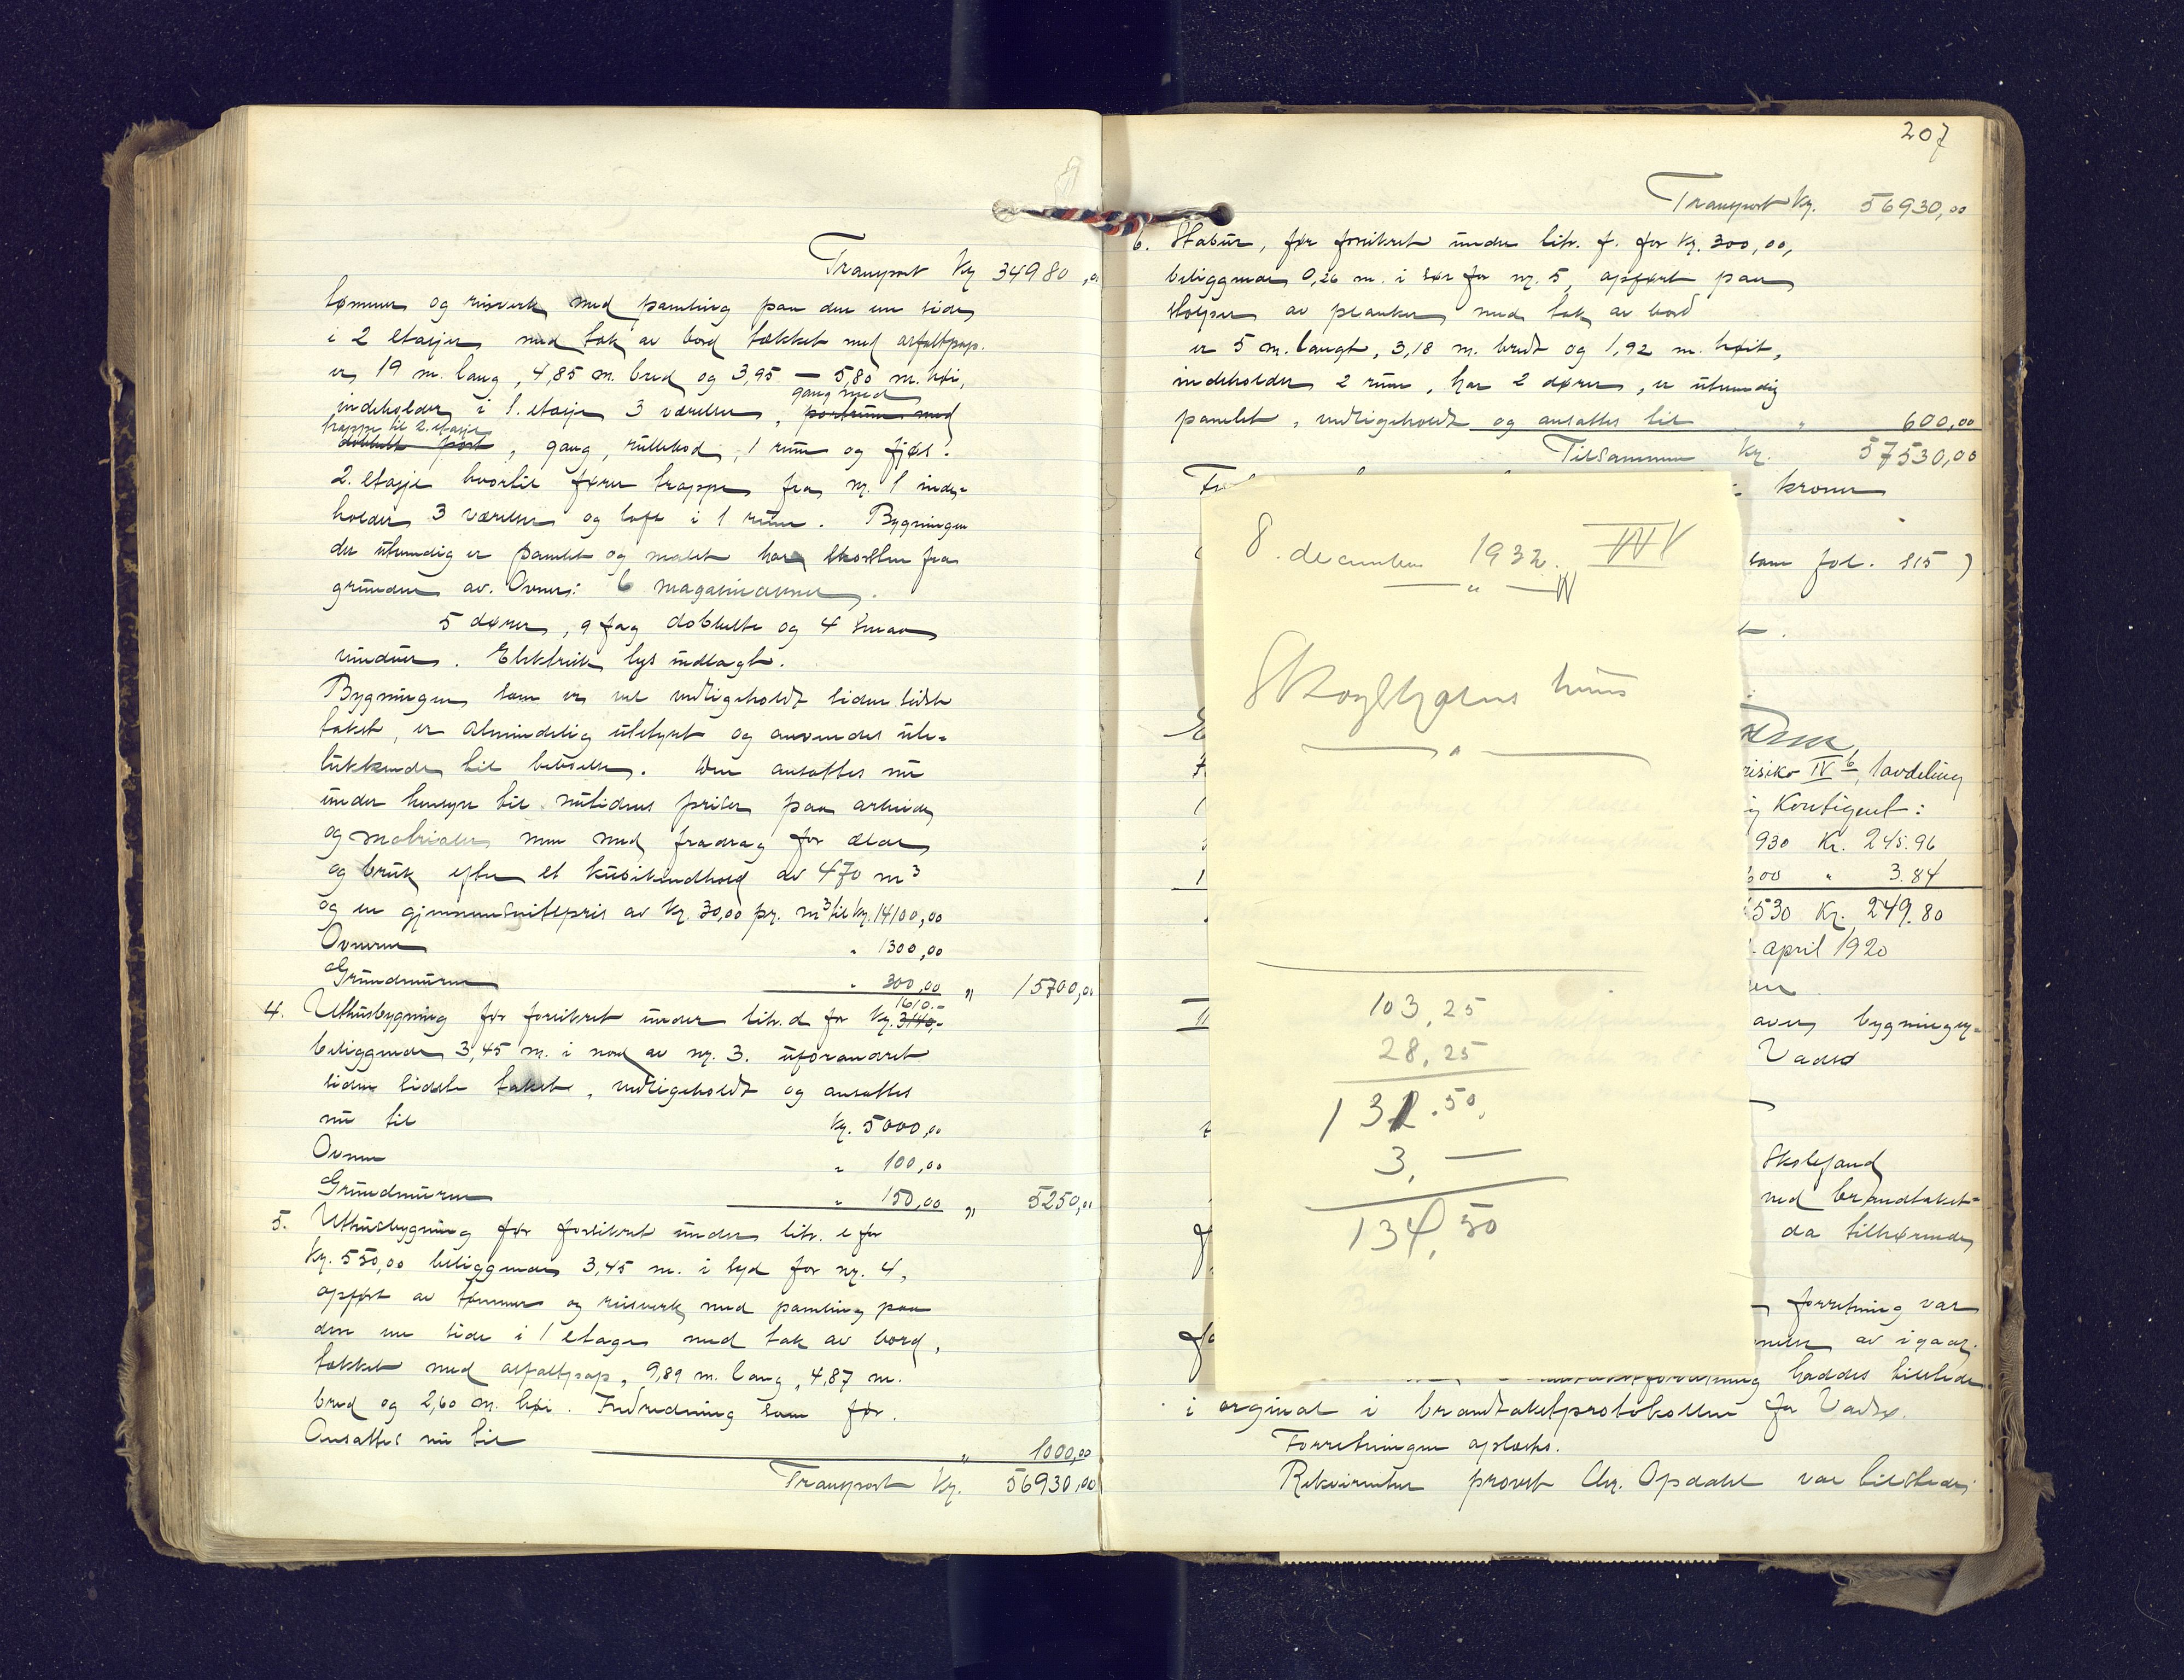 Transport Kr. 34980,00
tømmer og reisverk med panling paa den ene side
i 2 etasjer med tak av bord tækket med asfaltpap.
er 19 m. lang, 4,85 m. bred og 3,95 — 5,80 m. høi,
gang med
indeholder i 1. etasje 3 værelser, portrum med
trappe til 2. etasje
dobbelt port, gang, rullebod, 1 rum og fjøs.
2. etasje hvortil fører trappe fra nr. 1 inde=
holder 3 værelser og loft i 1 rum. Bygningen
der utvendig er panelt og malet har skorsten fra
grunden av. Ovner: 6 magasinovner.
5 dører, 9 fag dobbelte og 4 smaa
vinduer. Elektrisk lys indlagt.
Bygningen som er vel vedligeholdt siden sidste
takst, er almindelig utstyret og anvendes ute=
lukkende til beboelse. Den ansættes nu
under hensyn til nutidens priser paa arbeide
og materialer men med fradrag for ælde
og bruk efter et kubikindhold av 470 m³
og en gjennemsnitspris av kr. 30,00 pr. m³ til kr. 14100,00
Ovnerne " 1300,00
Grundmuren " 300,00 " 15700,00
1610.-
4. Uthusbygning før forsikret under litr. d for kr. 3140,-
beliggende 3,45 m. i nord av nr. 3. uforandret
siden sidste takst, vedligeholdt og ansættes
nu til kr. 5000,00
Ovnen " 100,00
Grundmuren " 150,00 " 5250,00
5. Uthusbygning før forsikret under litr. e for
kr. 550,00 beliggende 3,45 m. i syd for nr. 4,
opført av tømmer og reisverk med panling paa
den ene side i 1 etage med tak av bord,
tækket med asfaltpap, 9,89 m. lang, 4,87 m.
bred og 2,60 m. høi. Indredning som før.
Ansættes nu til " 1000,00
Transport kr. 56930,00
207
Transport kr. 56930,00
6. Stabur, før forsikret under litr. f. for kr. 300,00,
beliggende 0,26 m. i sør for nr. 5, opført paa
stolper av planker med tak av bord
er 5 m. langt, 3,18 m. bredt og 1,92 m. høit,
indeholder 2 rum, har 2 dører, er utvendig
panelt, vedligeholdt og ansættes til " 600,00
Tilsammen kr. 57530,00
kroner
som fol. 815)
risiko IV b, 1 avdeling
Kontigent:
930 Kr. 245.96
600 " 3.84
530 Kr. 249.80
april 1920
bygnings=
Vadsø
Skolefond
ved brandtakst=
da tilhørende
forretning var
av igaar.
haddes tilstede
i orginal i brandtakstprotokollen for Vadsø.
Forretningen oplæstes.
Rekvirenten provst Chr. Opdahl var tilstede
8. december 1932.
" — IV
Skogbjørns hus
103,25
28,25
131.50.
3. —
134,50